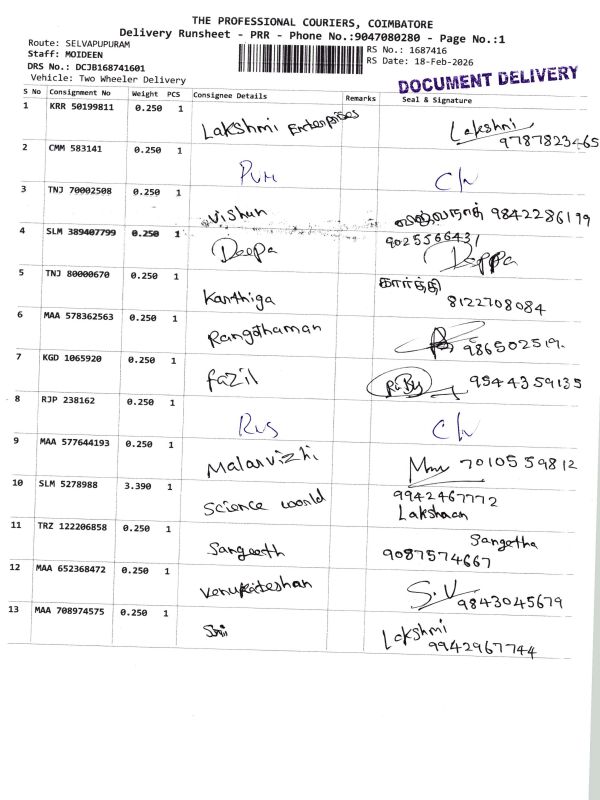 THE PROFESSIONAL COURIERS, COIMBATORE
Delivery Runsheet - PRR - Phone No.:9047080280 - Page No.:1
Route: SELVAPUPURAM
Staff: MOIDEEN
DRS No.: DCJB168741601
Vehicle: Two Wheeler Delivery
RS No.: 1687416
RS Date: 18-Feb-2026
DOCUMENT DELIVERY
S No Consignment No Weight PCS Consignee Details Remarks Seal & Signature
1 KRR 50199811 0.250 1 Lakshmi Enterprises Lakshmi 9787823465
2 CMM 583141 0.250 1
3 TNJ 70002508 0.250 1 Vishnu 9842286199
4 SLM 389407799 0.250 1 Deepa 9025566431 Deppa
5 TNJ 80000670 0.250 1 Karthiga கார்த்தி 8122708084
6 MAA 578362563 0.250 1 986502519
7 KGD 1065920 0.250 1 fazil 9544359135
8 RJP 238162 0.250 1
9 MAA 577644193 0.250 1 Malarvizhi 7010559812
10 SLM 5278988 3.390 1 Science world 9942467772 Lakshaan
11 TRZ 122206858 0.250 1 Sangeeth Sangetha 9087574667
12 MAA 652368472 0.250 1 S.V 9843045679
13 MAA 708974575 0.250 1 Lakshmi 9942967744